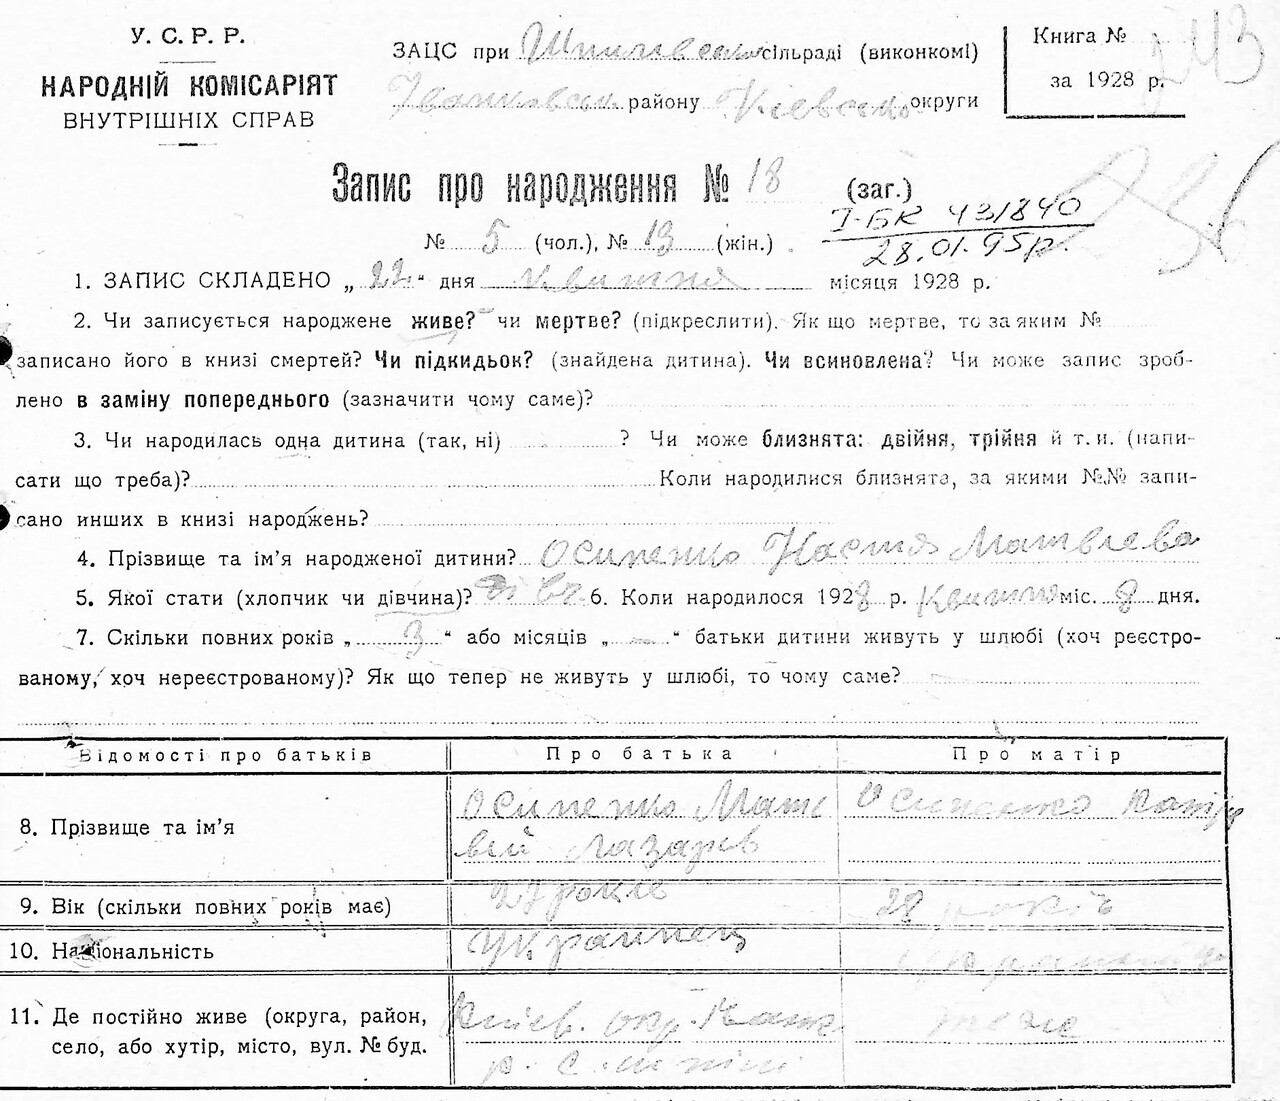 У. С. Р. Р.
НАРОДНІЙ КОМІСАРІЯТ
ВНУТРІШНІХ СПРАВ
ЗАЦС при сільраді (виконкомі)
району Київської округи
Книга №
за 1928 р.
243
Запис про народження № 18 (заг.)
№ 5 (чол.), № 13 (жін.)
І-БК 431840
28.01.95р.
1. ЗАПИС СКЛАДЕНО „ 22 “ дня квітня місяця 1928 р.
2. Чи записується народжене живе? чи мертве? (підкреслити). Як що мертве, то за яким №
записано його в книзі смертей? Чи підкидьок? (знайдена дитина). Чи всиновлена? Чи може запис зроб-
лено в заміну попереднього (зазначити чому саме)?
3. Чи народилась одна дитина (так, ні) ? Чи може близнята: двійня, трійня й т. и. (напи-
сати що треба)? Коли народилися близнята, за якими №№ запи-
сано инших в книзі народжень?
4. Прізвище та ім’я народженої дитини? Осипенко Настя Матвієва
5. Якої стати (хлопчик чи дівчина)? дівч. 6. Коли народилося 1928 р. Квітня міс. 8 дня.
7. Скільки повних років „ 3 “ або місяців „ — “ батьки дитини живуть у шлюбі (хоч реєстро-
ваному, хоч нереєстрованому)? Як що тепер не живуть у шлюбі, то чому саме?
Відомості про батьків Про батька Про матір
8. Прізвище та ім’я Осипенко Мат
вій Лазарів Осипенко
9. Вік (скільки повних років має) 27 років 28 років
10. Національність Українець
11. Де постійно живе (округа, район,
село, або хутір, місто, вул. № буд. Київ. окр.